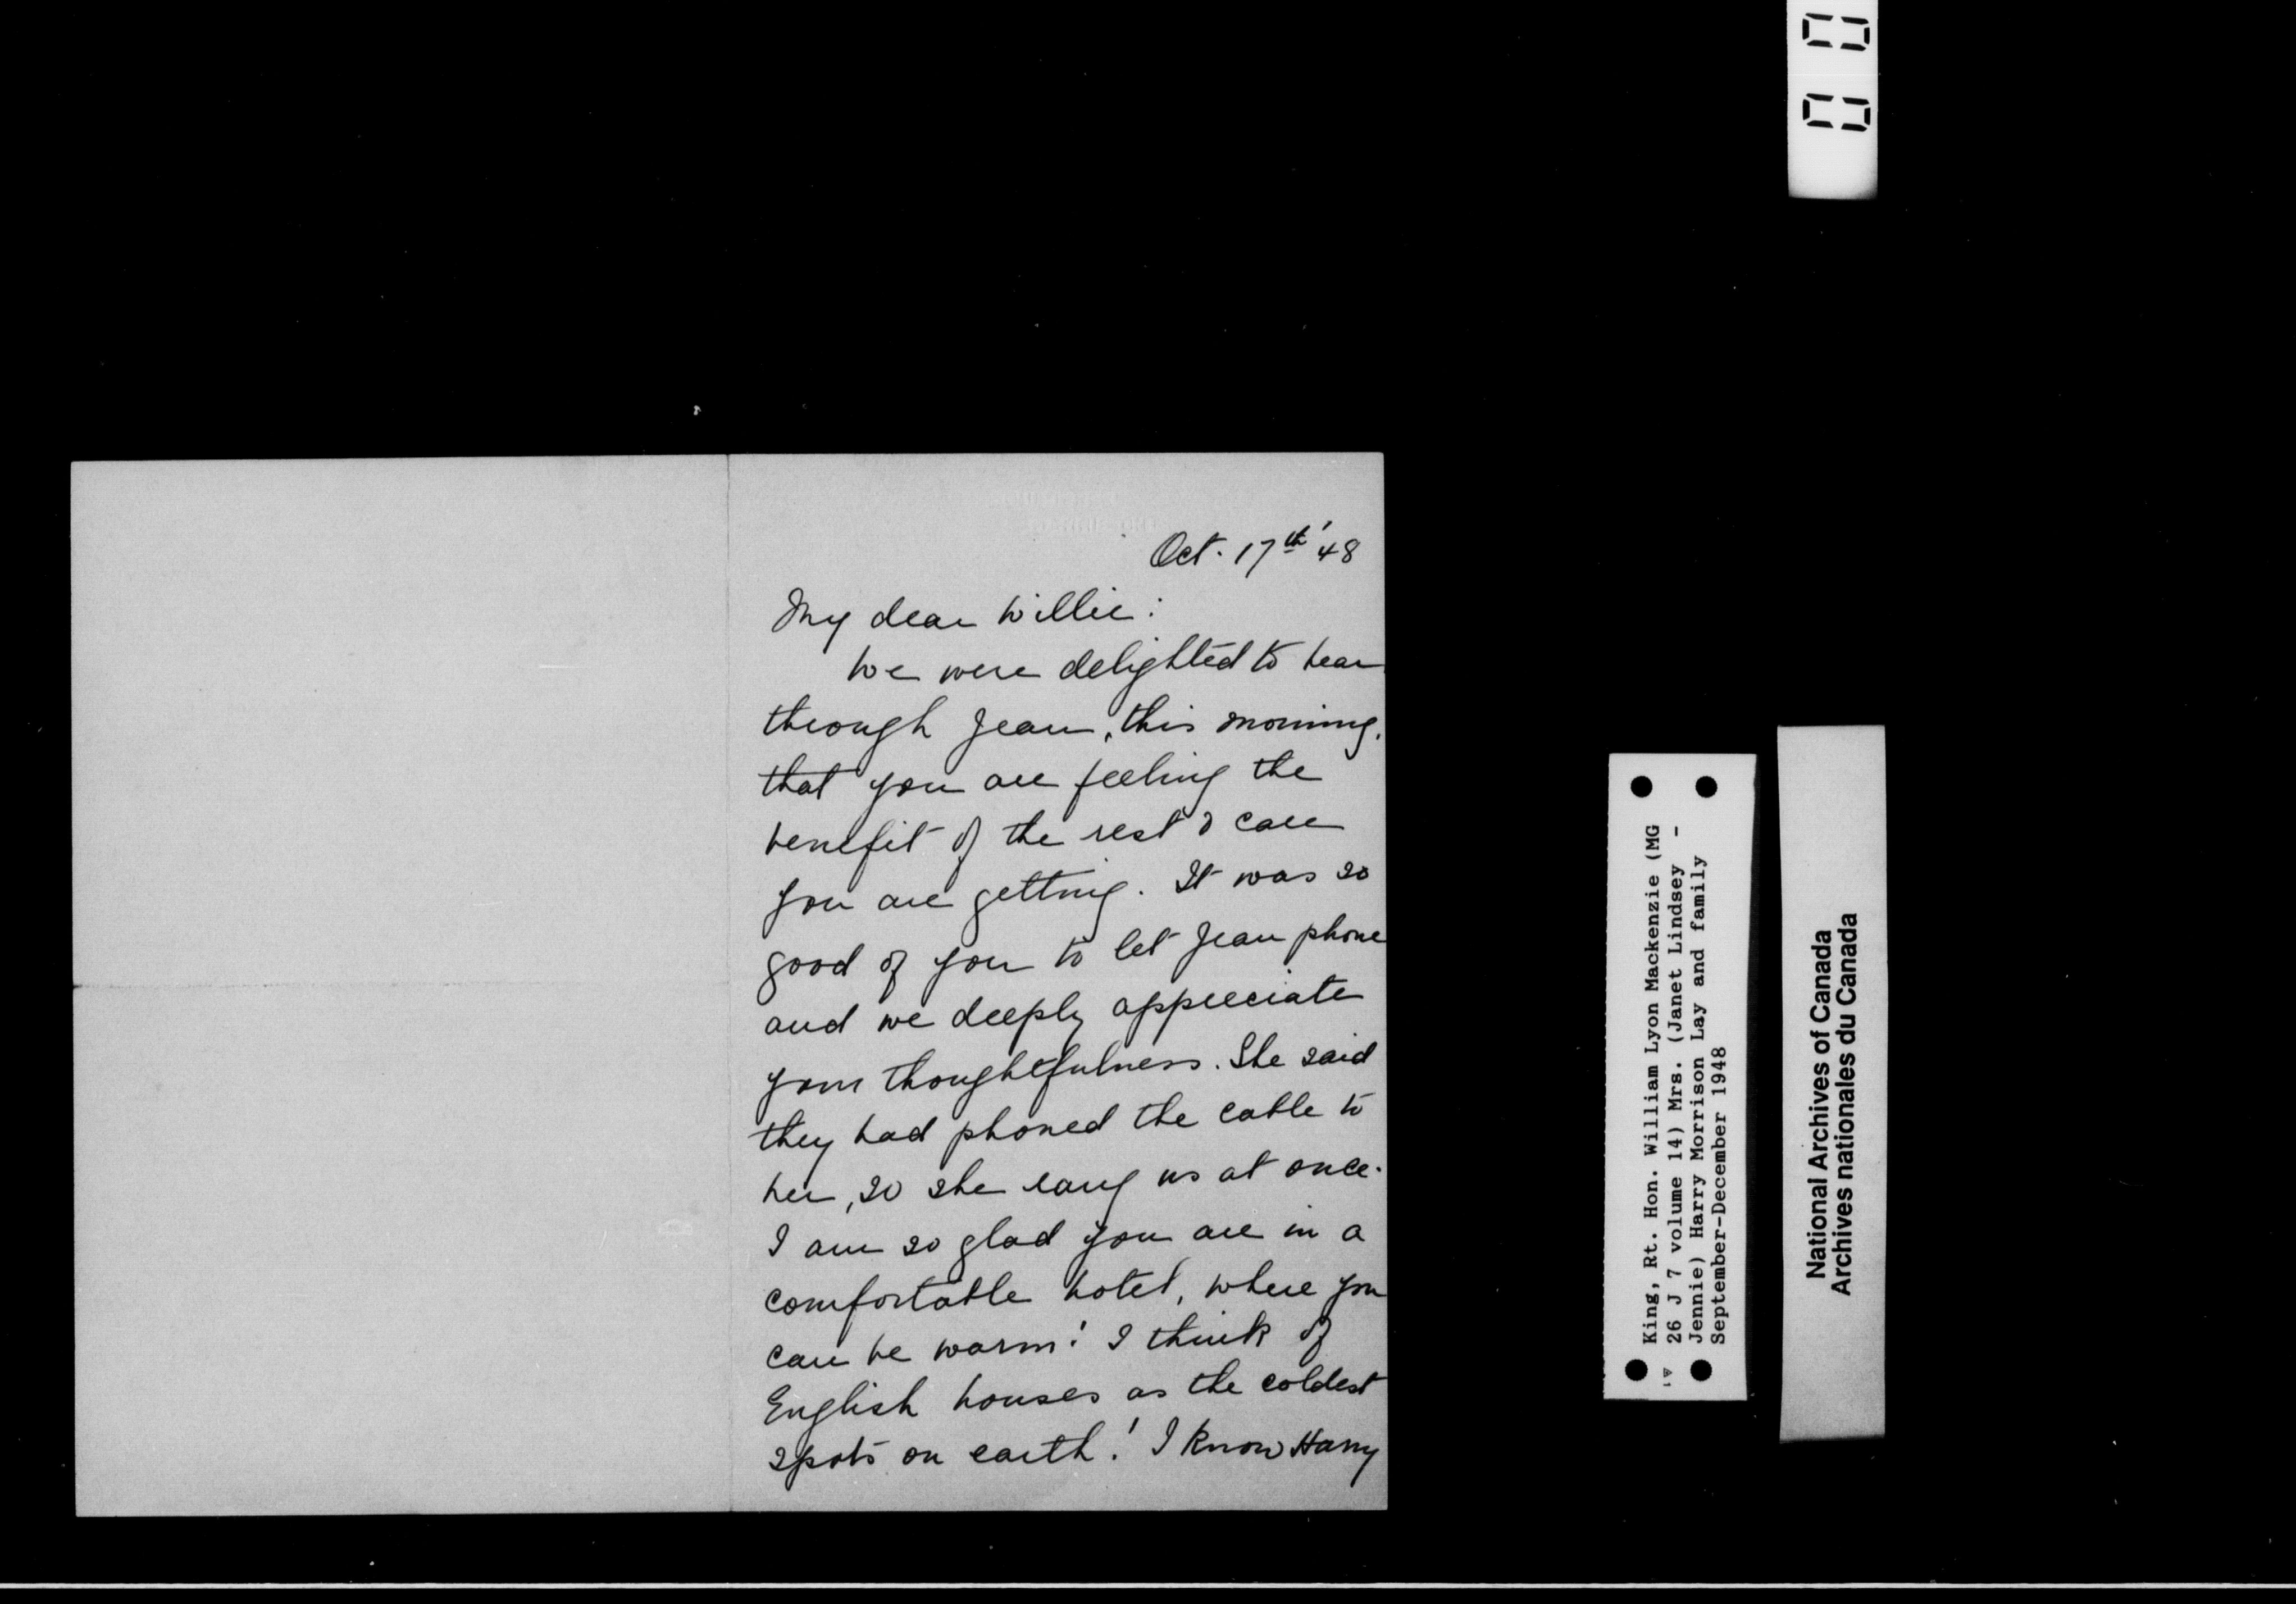 Oct. 17th '48
My dear Willie:
We were delighted to hear
through Jean, this morning,
that you are feeling the
benefit of the rest & care
you are getting. It was so
good of you to let Jean phone
and we deeply appreciate
your thoughtfulness. She said
they had phoned the cable to
her, so she rang us at once.
I am so glad you are in a
comfortable hotel, where you
can be warm! I think of
English houses as the coldest
spots on earth! I know Harry
King, Rt. Hon. William Lyon Mackenzie (MG
26 J 7 volume 14) Mrs. (Janet Lindsey -
Jennie) Harry Morrison Lay and family
September-December 1948
National Archives of Canada
Archives nationales du Canada